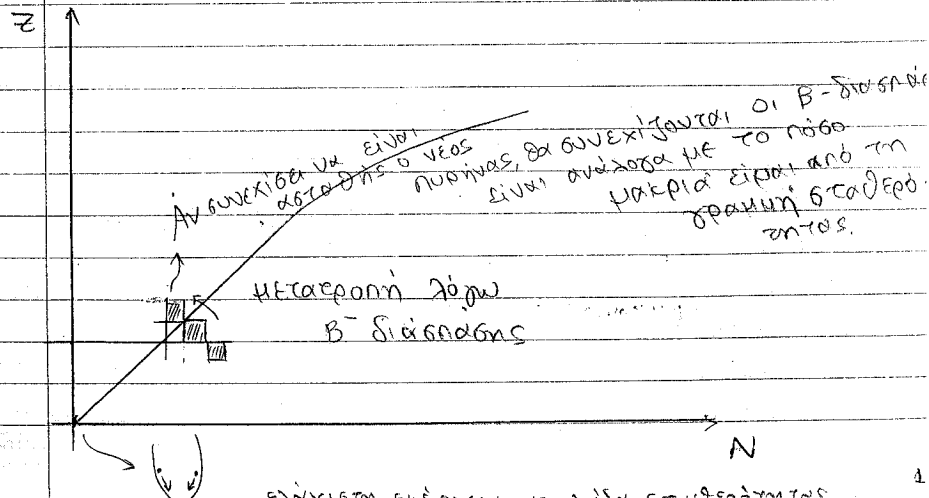 Z
Αν συνεχίσει να είναι
ασταθής ο νέος
πυρήνας, θα συνεχίζονται οι β-διασπάσ
είναι ανάλογα με το πόσο
μακριά είμαι από τη
γραμμή σταθερό-
τητας.
μετατροπή λόγω
β⁻ διάσπασης
N
1